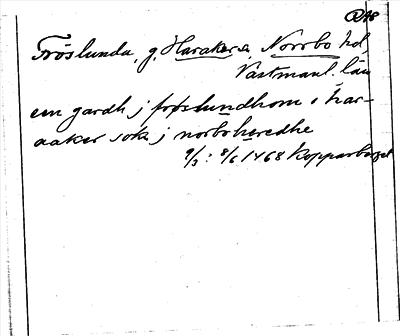 A48
Fröslunda, g. Haraker s, Norrbo hd,
Västmanl. län
en gardh j frøslundhom i har-
aaker sokn j norboheredhe
9/3: 8/6 1468 Kopparberget